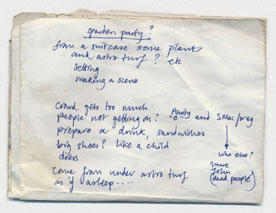 garden party?
from a suitcase some plants
and astro turf? etc
setting
making a scene
Crowd gets too much
people not getting on? Aunty and S Mac for eg
prepare a drink, sandwiches
big shoes? like a child
dress
who else?
John
(dead people)
come from under astro turf
as if asleep....